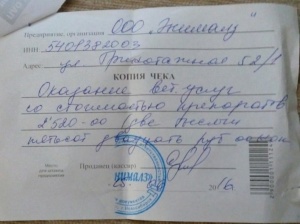 Предприятие, организация ООО Энималз
ИНН 5409382003
Адрес: ул Приготажная 52/1
КОПИЯ ЧЕКА
Оказание вет. услуг
со стоимостью препаратов
2520-00 (две тысячи
пятьсот двадцать руб 00коп
Продавец
нималз
25
2016г